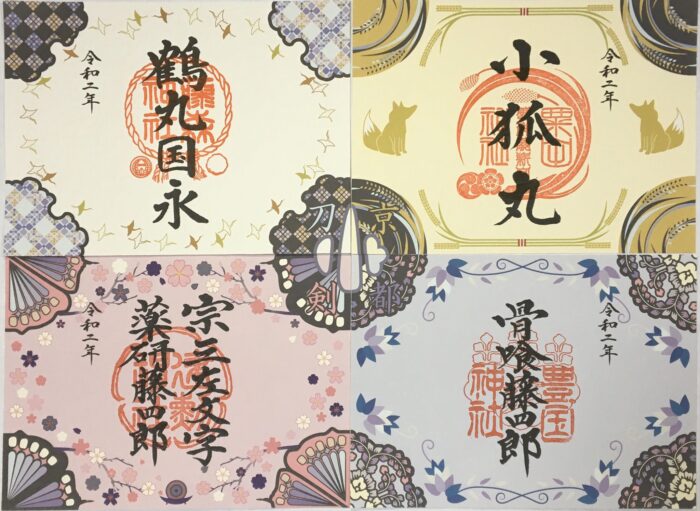 鶴丸国永
藤森
神社
令和二年
令和二年
小狐丸
粟田
神社
京都
刀剣
宗三左文字
薬研藤四郎
令和二年
令和二年
骨喰藤四郎
豊国
神社